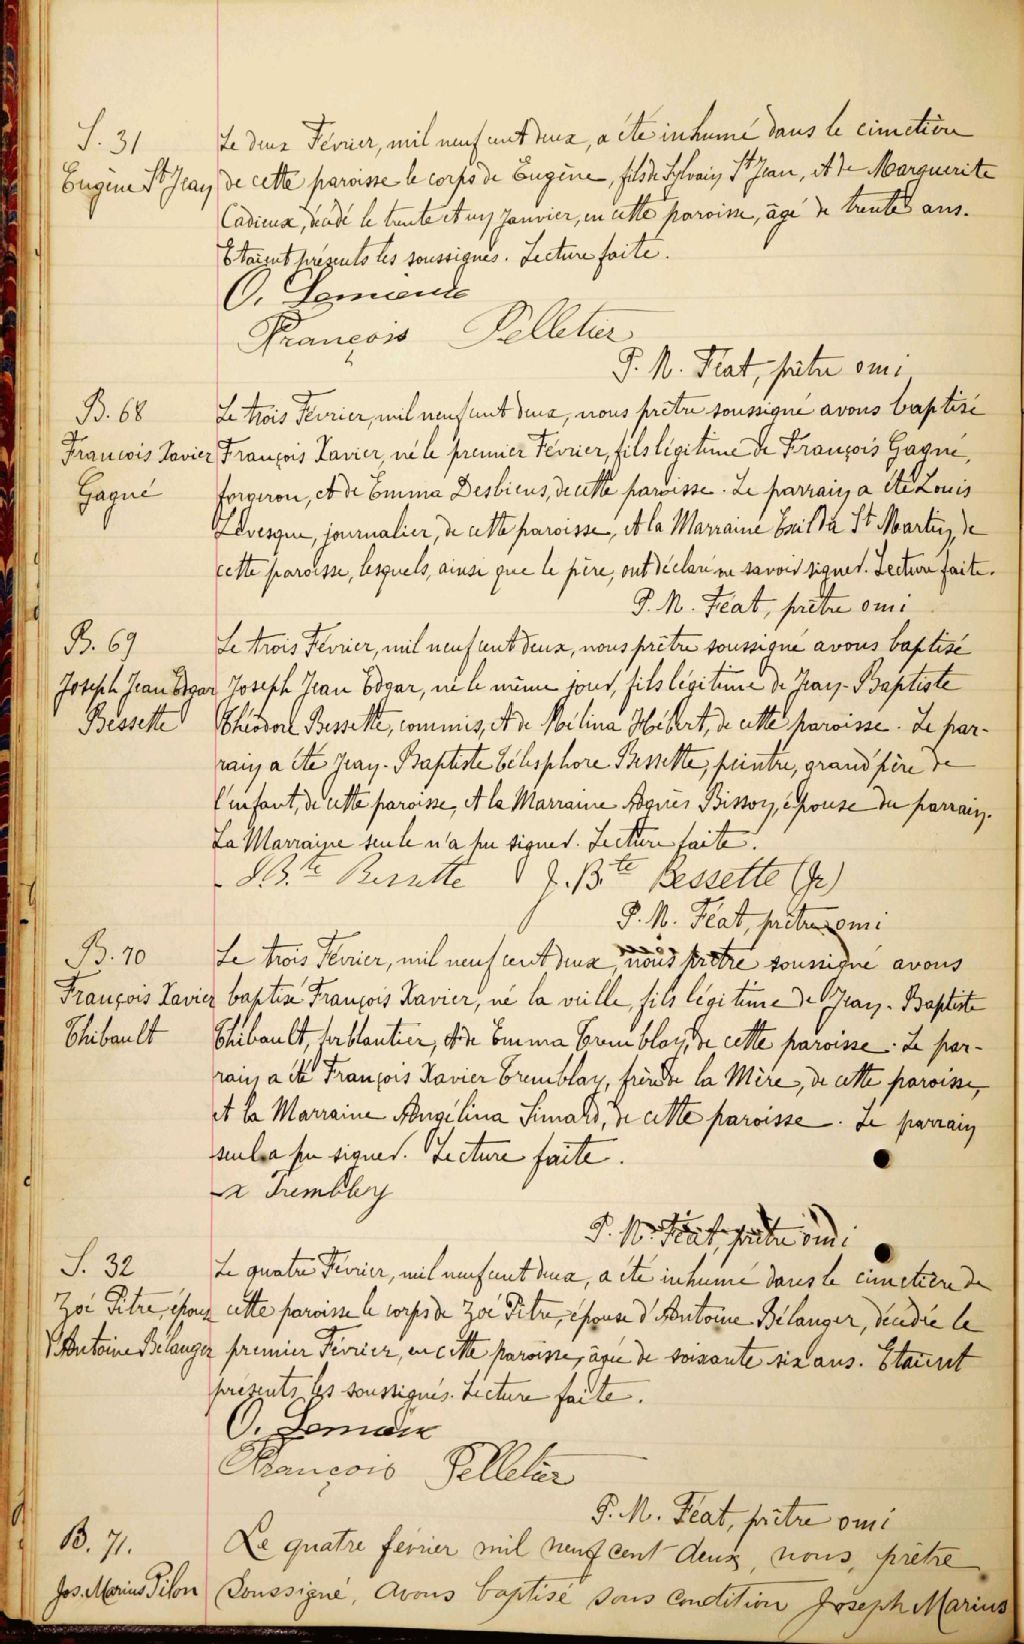 S. 31
Eugène St Jean
Le deux Février, mil neuf cent deux, a été inhumé dans le cimetière
de cette paroisse le corps de Eugène, fils de Sylvain St Jean, et de Marguerite
Cadieux, décédé le trente et un Janvier, en cette paroisse, âgé de trente ans.
Etaient présents les soussignés. Lecture faite.
O. Lemieux
François Pelletier
P. N. Féat, prêtre omi
B. 68
Francois Xavier
Gagné
Le trois Février, mil neuf cent deux, nous prêtre soussigné avons baptisé
François Xavier, né le premier Février, fils légitime de François Gagné,
forgeron, et de Emma Desbiens, de cette paroisse. Le parrain a été Louis
Lévesque, journalier, de cette paroisse, et la Marraine Exilda St Martin, de
cette paroisse, lesquels, ainsi que le père, ont déclaré ne savoir signer. Lecture faite.
P. N. Féat, prêtre omi
B. 69
Joseph Jean Edgar
Bessette
Le trois Février, mil neuf cent deux, nous prêtre soussigné avons baptisé
Joseph Jean Edgar, né le même jour, fils légitime de Jean-Baptiste
Théodore Bessette, commis, et de Mélina Hébert, de cette paroisse. Le par-
rain a été Jean-Baptiste Télesphore Bessette, peintre, grand'père de
l'enfant, de cette paroisse, et la Marraine Agnès Bisson, épouse du parrain.
La Marraine seule n'a pu signer. Lecture faite.
J.B.te Bessette J.B.te Bessette (Jr)
P. N. Féat, prêtre omi
B. 70
François Xavier
Thibault
Le trois Février, mil neuf cent deux, nous prêtre soussigné avons
baptisé François Xavier, né la veille, fils légitime de Jean-Baptiste
Thibault, ferblantier, et de Emma Tremblay, de cette paroisse. Le par-
rain a été François Xavier Tremblay, frère de la Mère, de cette paroisse,
et la Marraine Angélina Simard, de cette paroisse. Le parrain
seul a pu signer. Lecture faite.
x Tremblay
P. N. Féat, prêtre omi
S. 32
Zoé Pitre, épouse
d'Antoine Bélanger
Le quatre Février, mil neuf cent deux, a été inhumé dans le cimetière de
cette paroisse le corps de Zoé Pitre, épouse d'Antoine Bélanger, décédée le
premier Février, en cette paroisse, âgée de soixante six ans. Etaient
présents les soussignés. Lecture faite.
O. Lemieux
François Pelletier
P. N. Féat, prêtre omi
B. 71.
Jos. Marius Pilon
Le quatre février mil neuf cent deux, nous, prêtre
soussigné, avons baptisé sous condition Joseph Marius